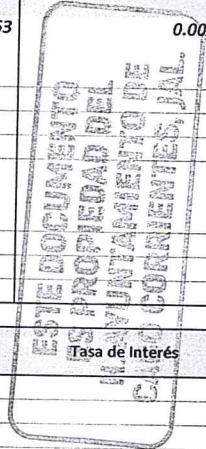 53
0.00
ESTE DOCUMENTO
ES PROPIEDAD DEL
H. AYUNTAMIENTO DE
CABO CORRIENTES, JAL.
Tasa de Interés